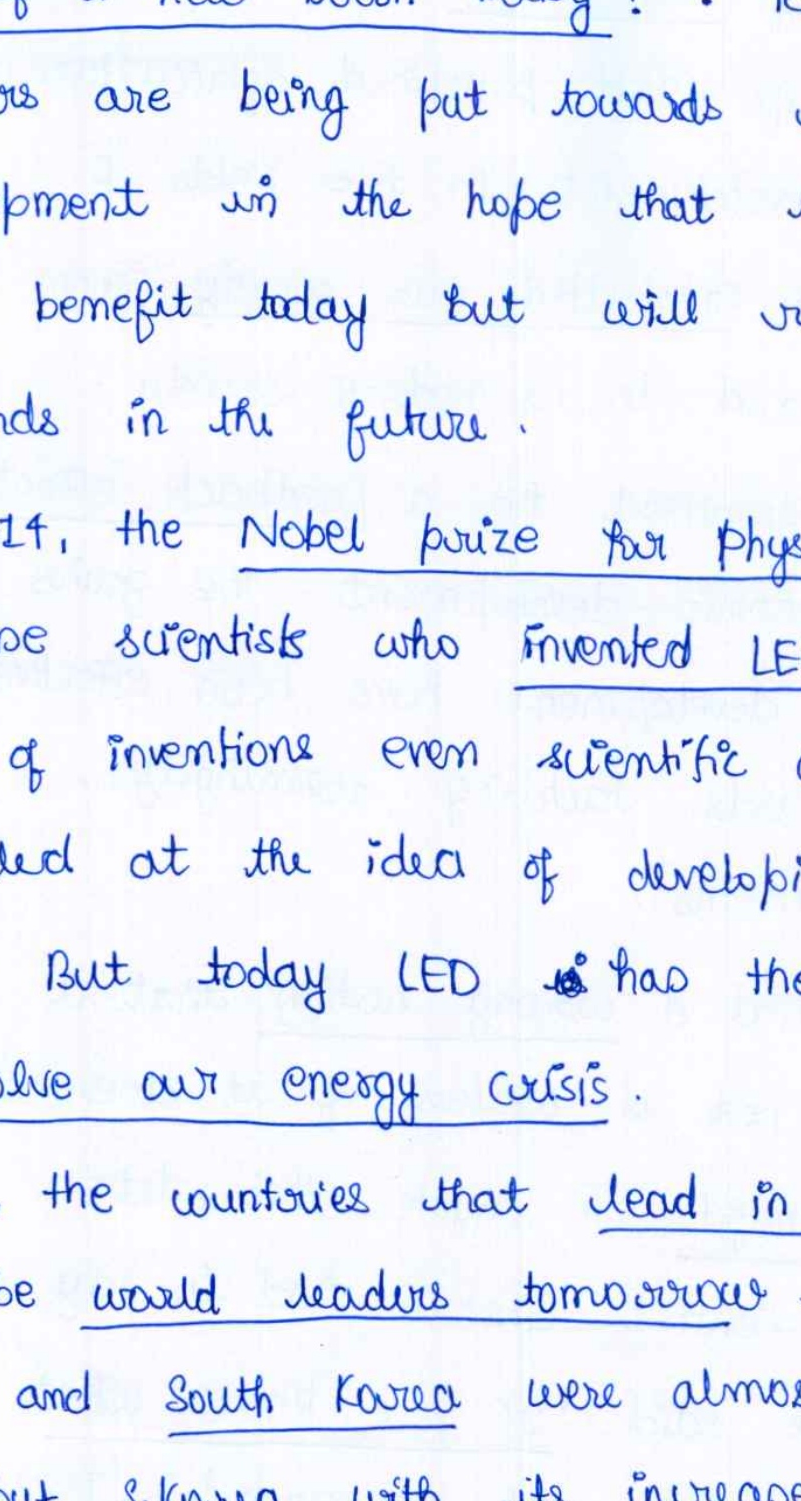 are being put towards
pment in the hope that
benefit today but will
nds in the future.
14, the Nobel prize for phys
scientists who invented LE
of inventions even scientific
led at the idea of developi
But today LED has the
lve our energy crisis.
the countries that lead in
be world leaders tomorrow
and South Korea were almos
with its increase